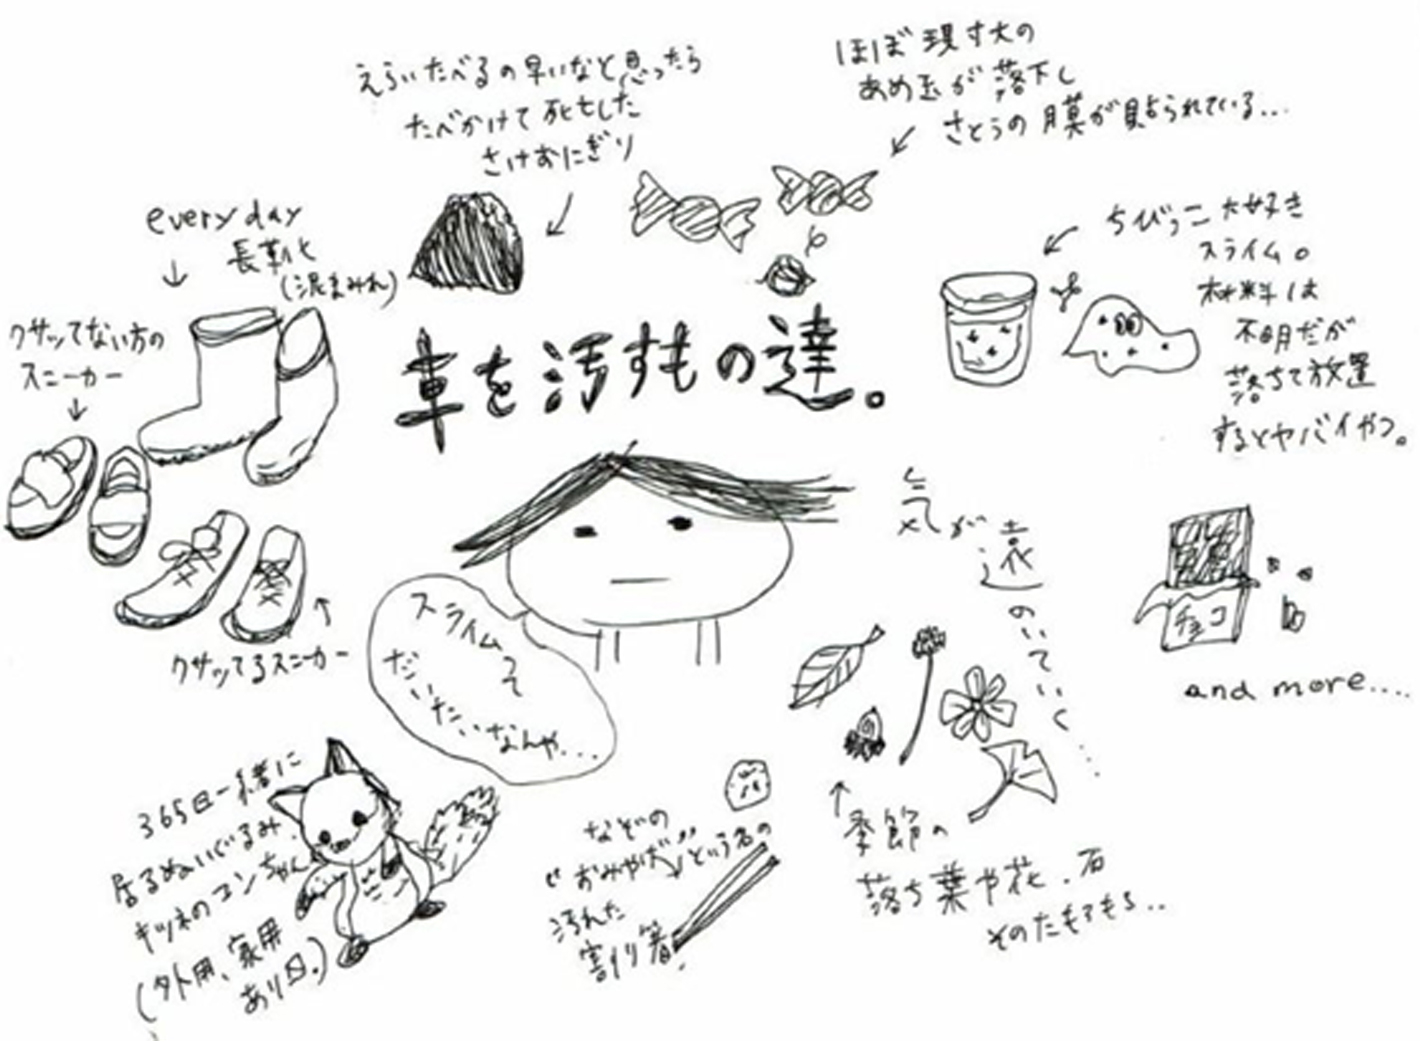 えらいたべるの早いなと思ったら
たべかけて死亡した
さけおにぎり
ほぼ現寸大の
あめ玉が落下し
さとうの膜が貼られている...
everyday
長靴
(泥まみれ)
クサッてない方の
スニーカー
クサッてるスニーカー
車を汚すもの達。
ちびっこ大好き
スライム。
材料は
不明だが
落ちて放置
するとヤバイやつ。
気が遠のいていく...
チョコ
and more....
スライムって
だいたいなんや...
365日一緒に
居るぬいぐるみ
キツネのコンちゃん
(外用、家用
あり〼.)
なぞの
"おみやげ"という名の
汚れた
割り箸.
季節の
落ち葉や花、石
そのたもろもろ..